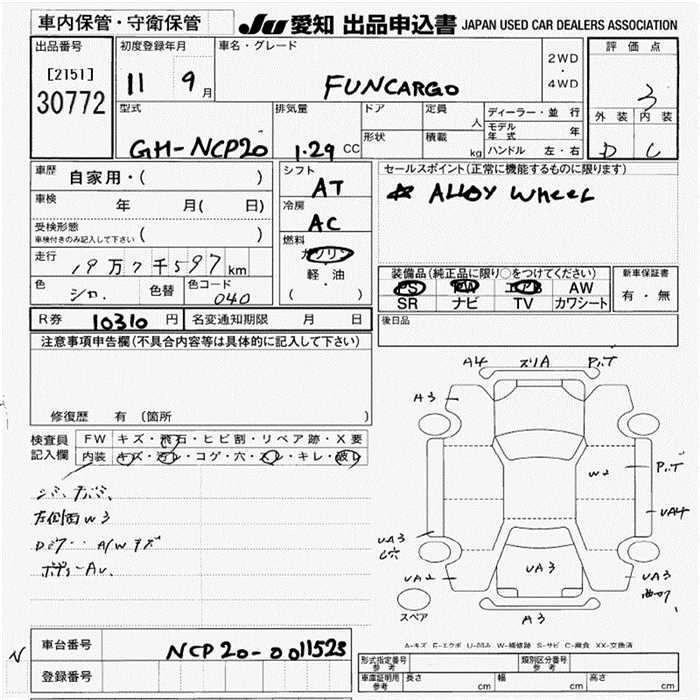 車内保管・守衛保管
JU 愛知 出品申込書 JAPAN USED CAR DEALERS ASSOCIATION
出品番号
[2151]
30772
初度登録年月
11 9月
車名・グレード
FUNCARGO
2WD
・
4WD
評価点
3
外装 内装
D C
型式
GH-NCP20
排気量
1.29 CC
ドア
形状
定員 人
積載 kg
ディーラー・並行
モデル年式 年
ハンドル 左・右
車歴 自家用・( )
車検 年 月( 日)
受検形態 ( )
車検付きのみ記入して下さい
走行 19万7千597km
色 シロ. 色替 色コード 040
シフト
AT
冷房
AC
燃料
ガソリン
・
軽・油
( )
セールスポイント(正常に機能するものに限ります)
☆ ALLOY WHEEL
装備品(純正品に限り○をつけてください)
PS PW エアB AW
SR ナビ TV カワシート
新車保証書
有・無
R券 10310 円 名変通知期限 月 日
後日品
注意事項申告欄(不具合内容等は具体的に記入して下さい)
修復歴 有(箇所 )
検査員記入欄
FW キズ・飛石・ヒビ割・リペア跡・X要
内装 キズ・汚レ・コゲ・穴・スレ・キレ・破レ
左側面W3
A/Wキズ
A4 ズリA
A3
W2
UA4
UA3
穴
UA2
UA3
UA3
A3
スペア
A-キズ E-エクボ U-凹み W-補修跡 S-サビ C-腐食 XX-交換済
N
車台番号 NCP20-0011523
登録番号
形式指定番号 参考
類別区分番号 参考
車庫証明用 参考 長さ cm 幅 cm 高さ cm